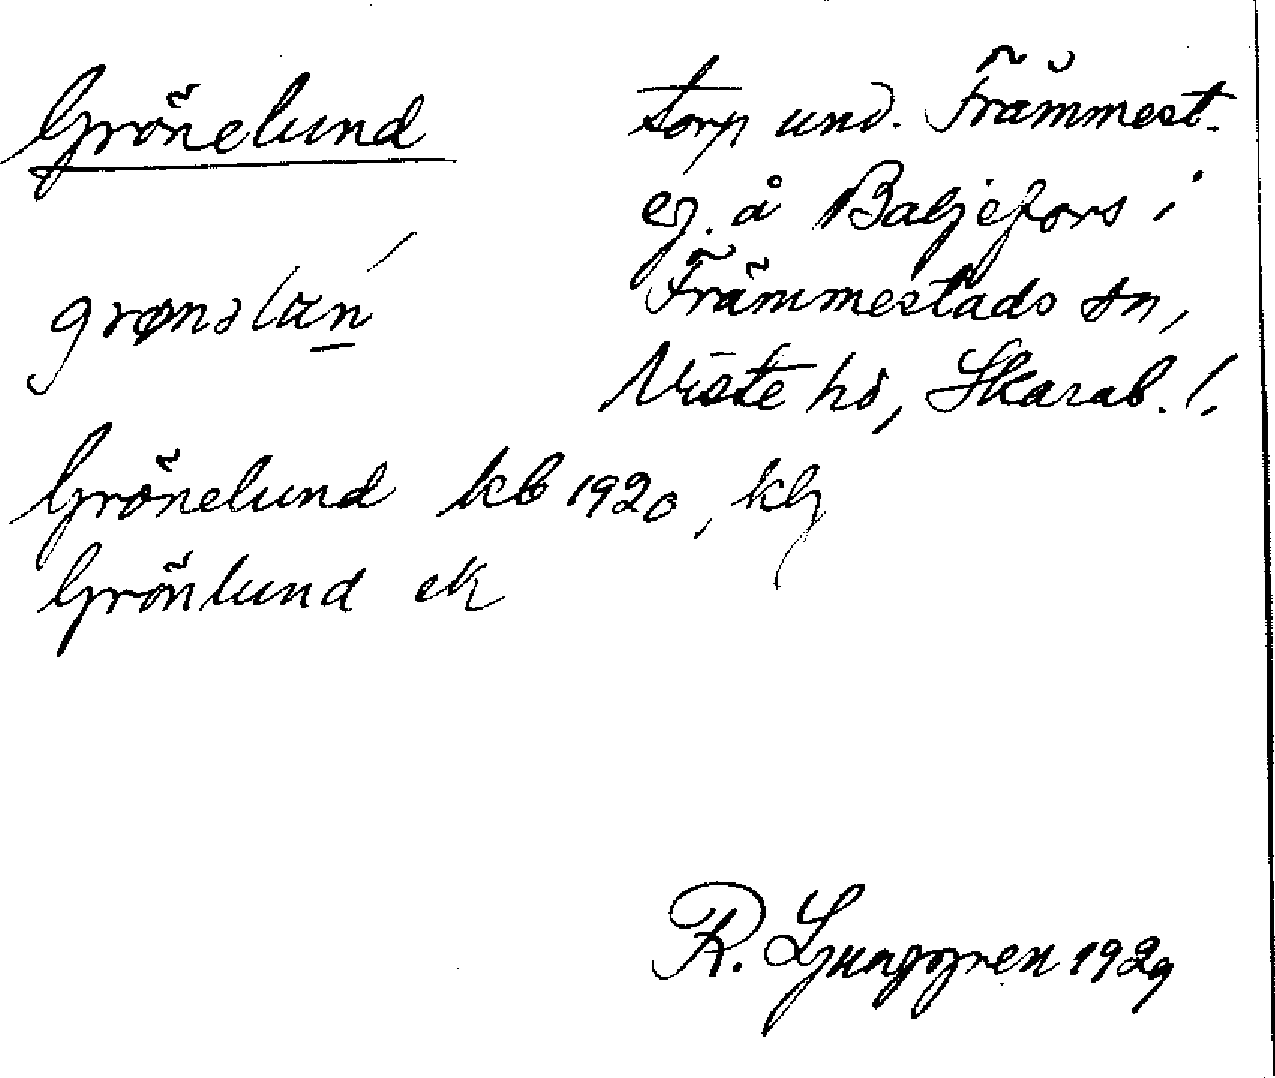 Grönelund
torp und. Främmest.
eg. å Baljefors i
Främmestads sn,
Viste hd, Skarab. l.
Grönelund kb 1920, kg
Grönlund ek
R. Ljunggren 1929